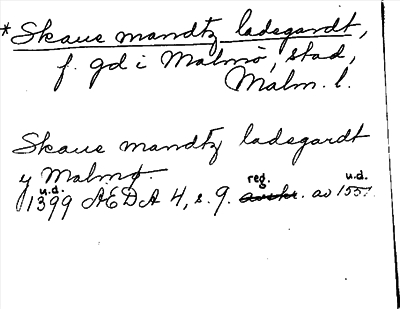 *Skaue mandtz ladegardt,
f. gd i Malmö, stad,
Malm. l.
Skaue mandtz ladegardt
y Malmø.
u.d. reg. u.d.
1399 ÆDA 4, s. 9. avskr. av 155?.